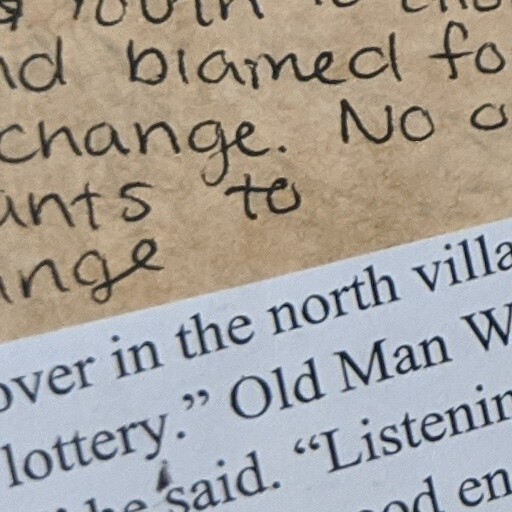 Youth is
nd blamed fo
change. No o
ants to
ange
over in the north villa
lottery.” Old Man W
he said. “Listenin
od en